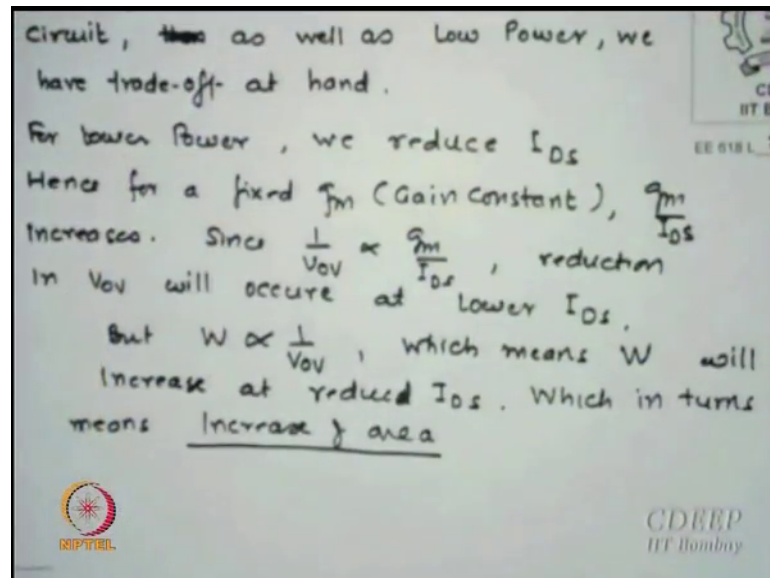 Circuit, as well as Low Power, we
have trade-off at hand.
For lower Power, we reduce I_DS
Hence for a fixed gm (Gain Constant), gm/I_DS
increases. Since 1/V_OV ∝ gm/I_DS, reduction
In V_OV will occure at Lower I_DS.
But W ∝ 1/V_OV, which means W will
Increase at reduced I_DS. Which in turns
means Increase of area
IIT B
EE 618 L
NPTEL
CDEEP
IIT Bombay